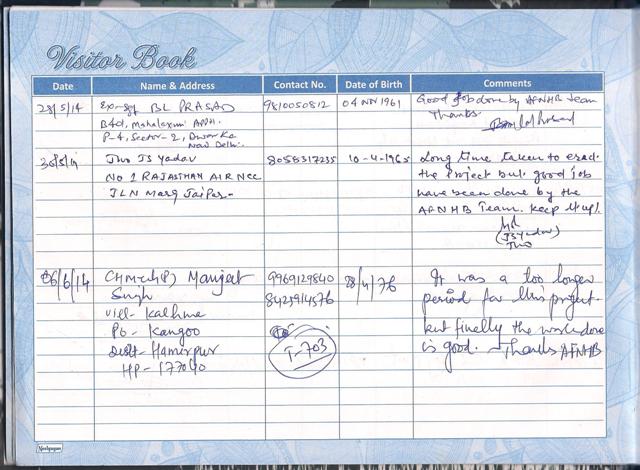 Visitor Book
Date Name & Address Contact No. Date of Birth Comments
28/5/14 Ex-Sgt BL PRASAD 9810050812 04 NOV 1961 Good job done by AFNHB team
B401, Mahalaxmi Appt. Thanks
P-4, Sector-2, Dwarka
New Delhi.
JWO JS Yadav 8058317235 10-4-1965 Long time taken to
NO 2 RAJASTHAN AIR NCC the project but good job
JLN Marg Jaipur- have been done by the
AFNHB Team. Keep it up!
(JS Yadav)
JWO
06/6/14 Manjeet 9969129840 28/4/76 It was a too longer
Singh 8425914576 period for this project
Vill- Kalhna but finelly the work done
Po- Kangoo is good. Thanks AFNHB
Distt- Hamirpur T-703
HP- 177040
Neelgagan